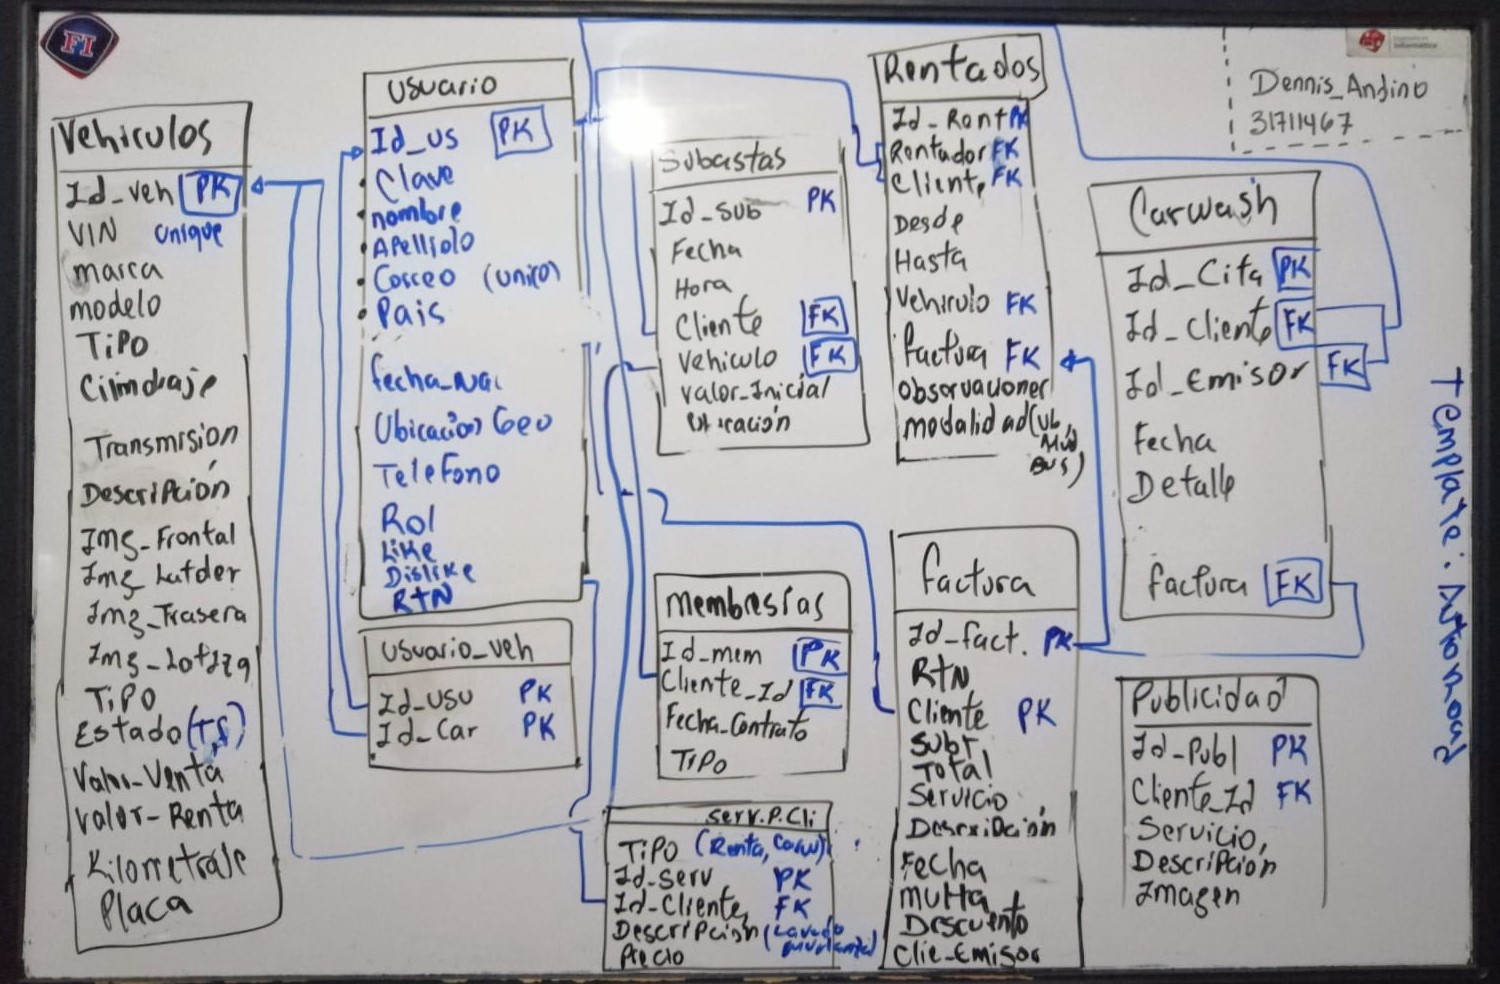 FI
Dennis_Andino
31711467
Vehiculos
Id_veh PK
VIN unique
marca
modelo
TiPo
Cilindraje
Transmision
Descripción
Img_Frontal
Img_Latder
Img_Trasera
Img_Latizq
TiPo
Estado
Valor-Venta
Valor-Renta
Kilometraje
Placa
Usuario
Id_us PK
Clave
nombre
Apellido
Correo (unico)
Pais
fecha_Nac
Ubicacion Geo
Telefono
Rol
Like
Dislike
RTN
Usuario_veh
Id_usu PK
Id_Car PK
Subastas
Id_Sub PK
Fecha
Hora
Cliente FK
Vehiculo FK
Valor_Inicial
Membresías
Id_mem PK
Cliente_Id FK
Fecha_Contrato
TiPo
Serv.P.Cli
TiPo (Renta, Carw)
Id-Serv PK
Id-Cliente FK
Descripción (Lavado
Precio
Rentados
Id_Rent PK
Rentador FK
Cliente FK
Desde
Hasta
Vehiculo FK
factura FK
observaciones
modalidad
Bus)
factura
Id_fact. PK
RTN
Cliente PK
SubT
Total
Servicio
Descripción
Fecha
Multa
Descuento
Clie_Emisor
Carwash
Id_Cita PK
Id_Cliente FK
Id_Emisor FK
Fecha
Detalle
factura FK
Publicidad
Id_Publ PK
Cliente_Id FK
Servicio,
Descripcion
Imagen
Template: Autoroad